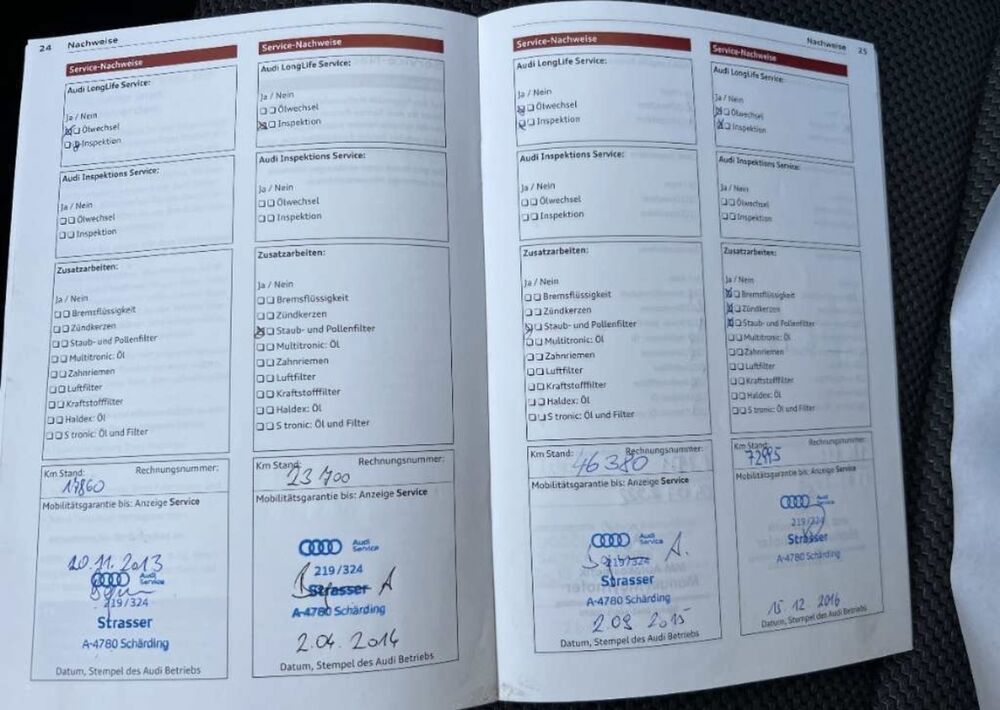 24 Nachweise
Service-Nachweise
Audi LongLife Service:
Ja / Nein
Ölwechsel
Inspektion
Audi Inspektions Service:
Ja / Nein
Ölwechsel
Inspektion
Zusatzarbeiten:
Ja / Nein
Bremsflüssigkeit
Zündkerzen
Staub- und Pollenfilter
Multitronic: Öl
Zahnriemen
Luftfilter
Kraftstofffilter
Haldex: Öl
S tronic: Öl und Filter
Km Stand: Rechnungsnummer:
Mobilitätsgarantie bis: Anzeige Service
20.11.2013
Audi Service
219/324
Strasser
A-4780 Schärding
Datum, Stempel des Audi Betriebs
Service-Nachweise
Audi LongLife Service:
Ja / Nein
Ölwechsel
Inspektion
Audi Inspektions Service:
Ja / Nein
Ölwechsel
Inspektion
Zusatzarbeiten:
Ja / Nein
Bremsflüssigkeit
Zündkerzen
Staub- und Pollenfilter
Multitronic: Öl
Zahnriemen
Luftfilter
Kraftstofffilter
Haldex: Öl
S tronic: Öl und Filter
Km Stand: Rechnungsnummer:
23 700
Mobilitätsgarantie bis: Anzeige Service
Audi Service
219/324
Strasser
A-4780 Schärding
2.04.2014
Datum, Stempel des Audi Betriebs
Nachweise 25
Service-Nachweise
Audi LongLife Service:
Ja / Nein
Ölwechsel
Inspektion
Audi Inspektions Service:
Ja / Nein
Ölwechsel
Inspektion
Zusatzarbeiten:
Ja / Nein
Bremsflüssigkeit
Zündkerzen
Staub- und Pollenfilter
Multitronic: Öl
Zahnriemen
Luftfilter
Kraftstofffilter
Haldex: Öl
S tronic: Öl und Filter
Km Stand: Rechnungsnummer:
46 380
Mobilitätsgarantie bis: Anzeige Service
Audi Service
219/324
Strasser
A-4780 Schärding
2 09 2015
Datum, Stempel des Audi Betriebs
Service-Nachweise
Audi LongLife Service:
Ja / Nein
Ölwechsel
Inspektion
Audi Inspektions Service:
Ja / Nein
Ölwechsel
Inspektion
Zusatzarbeiten:
Ja / Nein
Bremsflüssigkeit
Zündkerzen
Staub- und Pollenfilter
Multitronic: Öl
Zahnriemen
Luftfilter
Kraftstofffilter
Haldex: Öl
S tronic: Öl und Filter
Km Stand: Rechnungsnummer:
Mobilitätsgarantie bis: Anzeige Service
Audi Service
219/324
Strasser
A-4780 Schärding
15.12.2016
Datum, Stempel des Audi Betriebs